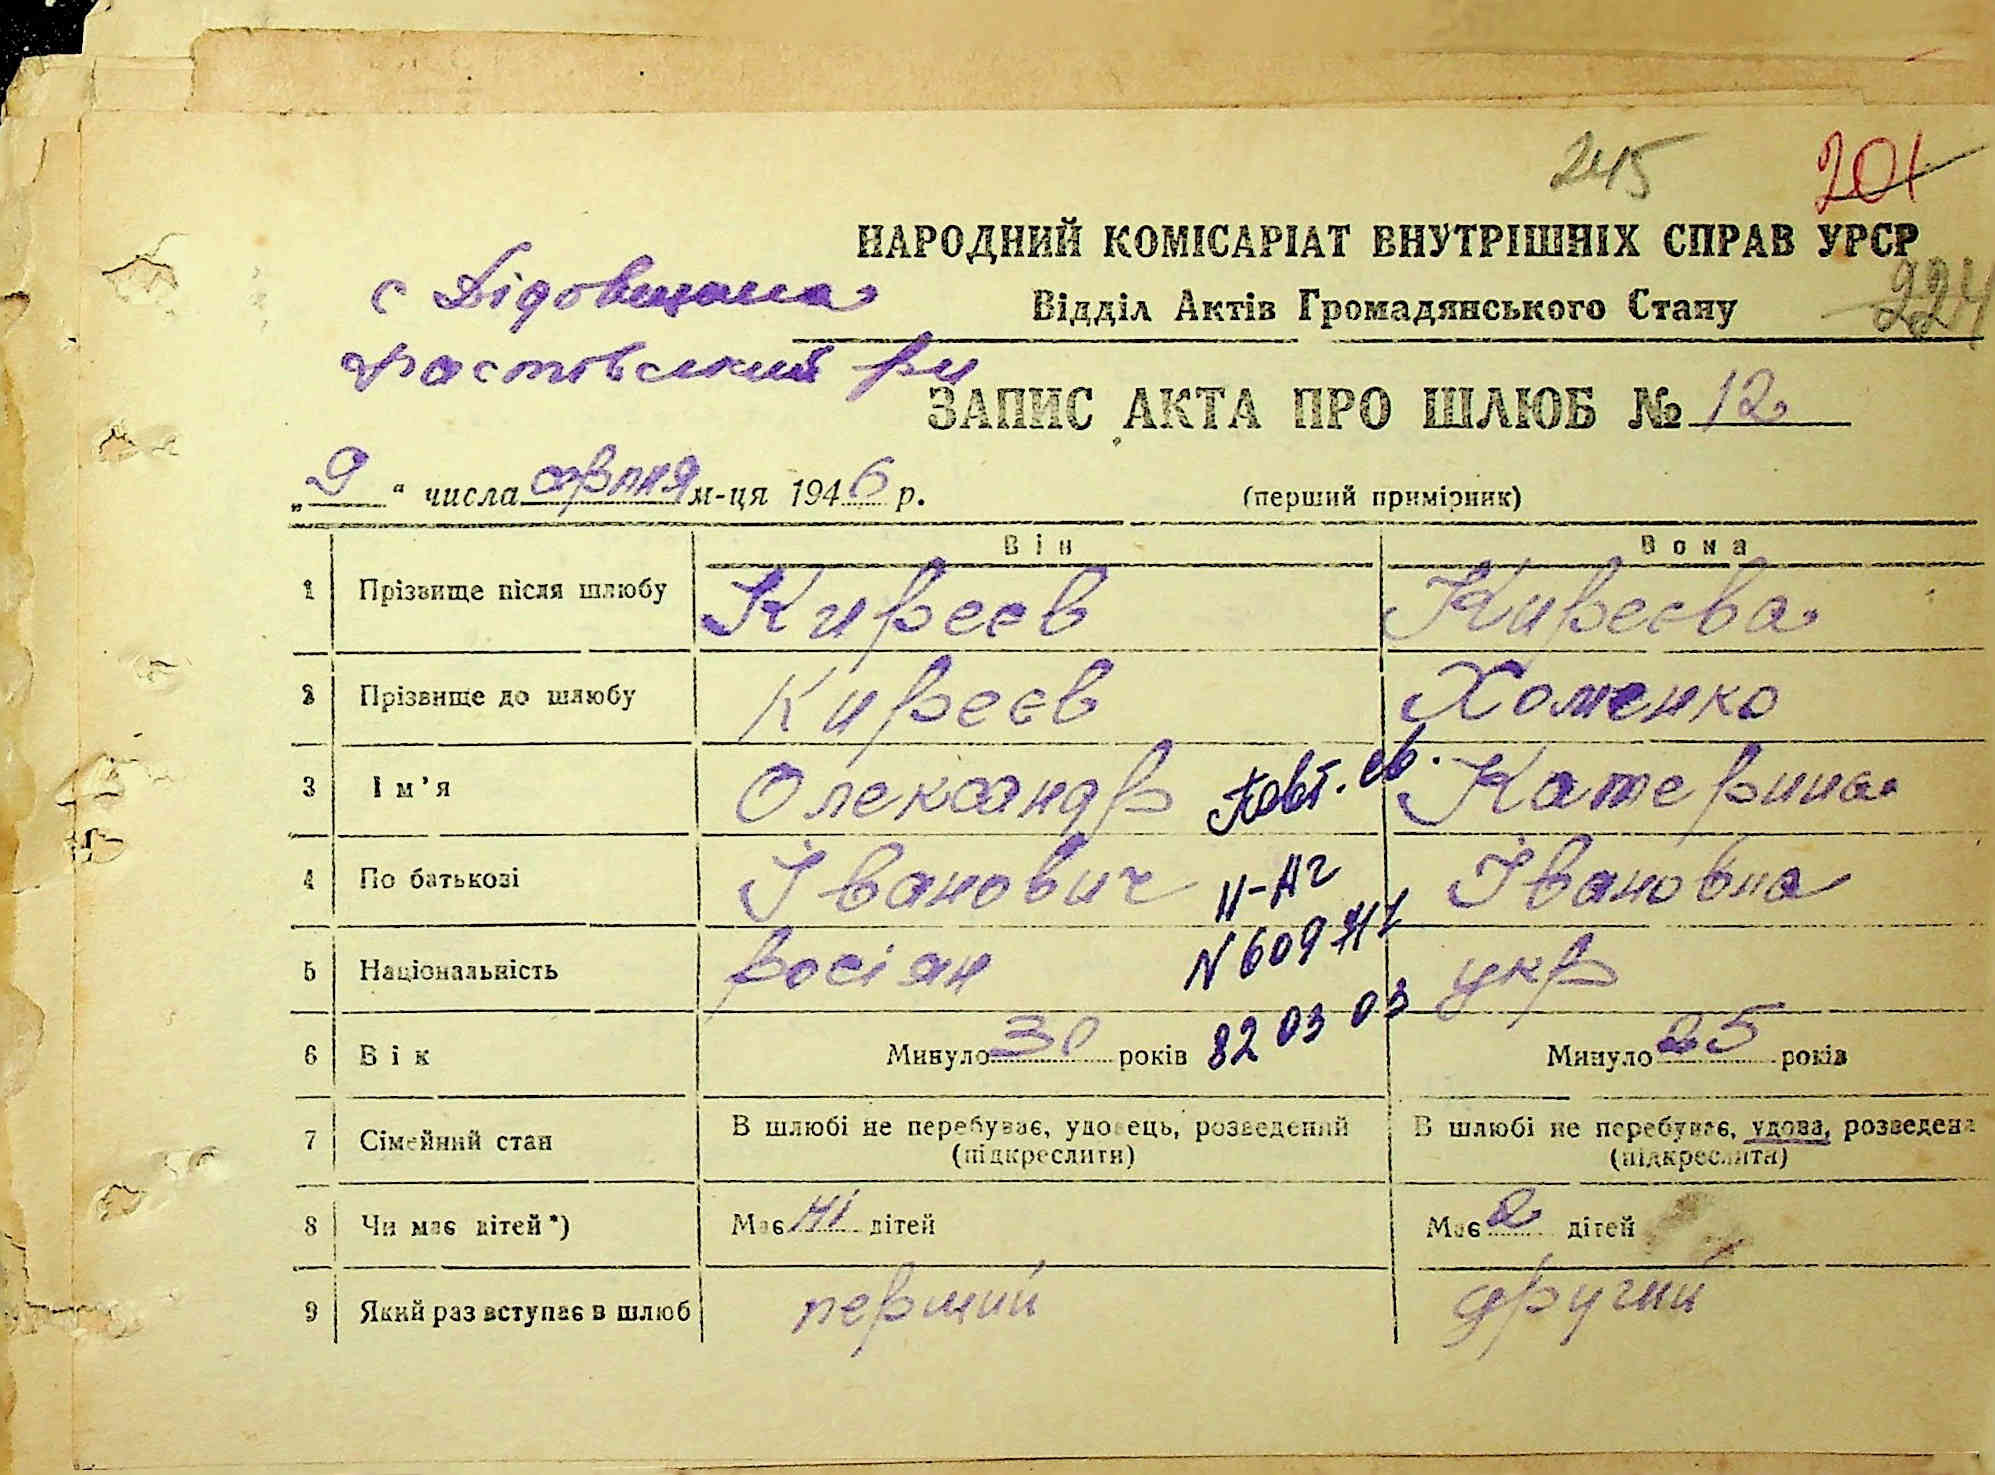 245 201
НАРОДНИЙ КОМІСАРІАТ ВНУТРІШНІХ СПРАВ УРСР
с Дідовщина
Відділ Актів Громадянського Стану
224
Фастовский рн
ЗАПИС АКТА ПРО ШЛЮБ № 12
„9“ числа серпня м-ця 1946 р. (перший примірник)
Він Вона
1 Прізвище після шлюбу Киреєв Киреєва
2 Прізвище до шлюбу Киреєв Хоменко
3 Ім'я Олександр Повт. св. Катерина
4 По батькові Іванович II-АГ Івановна
5 Національність росіян N 609 укр
6 Вік Минуло 30 років 82 03 03 Минуло 25 років
7 Сімейний стан В шлюбі не перебуває, удовець, розведений (підкреслити) В шлюбі не перебуває, удова, розведена (підкреслити)
8 Чи має дітей*) Має ні дітей Має 2 дітей
9 Який раз вступає в шлюб перший другий